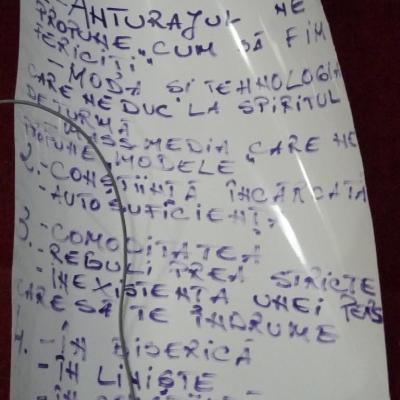 -ANTURAJUL NE
PROPUNE "CUM SĂ FIM
FERICIȚI"
-MODA SI TEHNOLOGIA
CARE NE DUC LA SPIRITUL
DE TURMĂ
MASS MEDIA CARE NE
PROPUNE MODELE"
2.-CONȘTIINȚĂ ÎNCĂRCATĂ
-AUTOSUFICIENȚĂ
3.-COMODITATEA
-REGULI PREA STRICTE
-INEXISTENȚA UNEI PERS
CARE SĂ TE ÎNDRUME
4.-ÎN BISERICĂ
-ÎN LINIȘTE
-ÎN